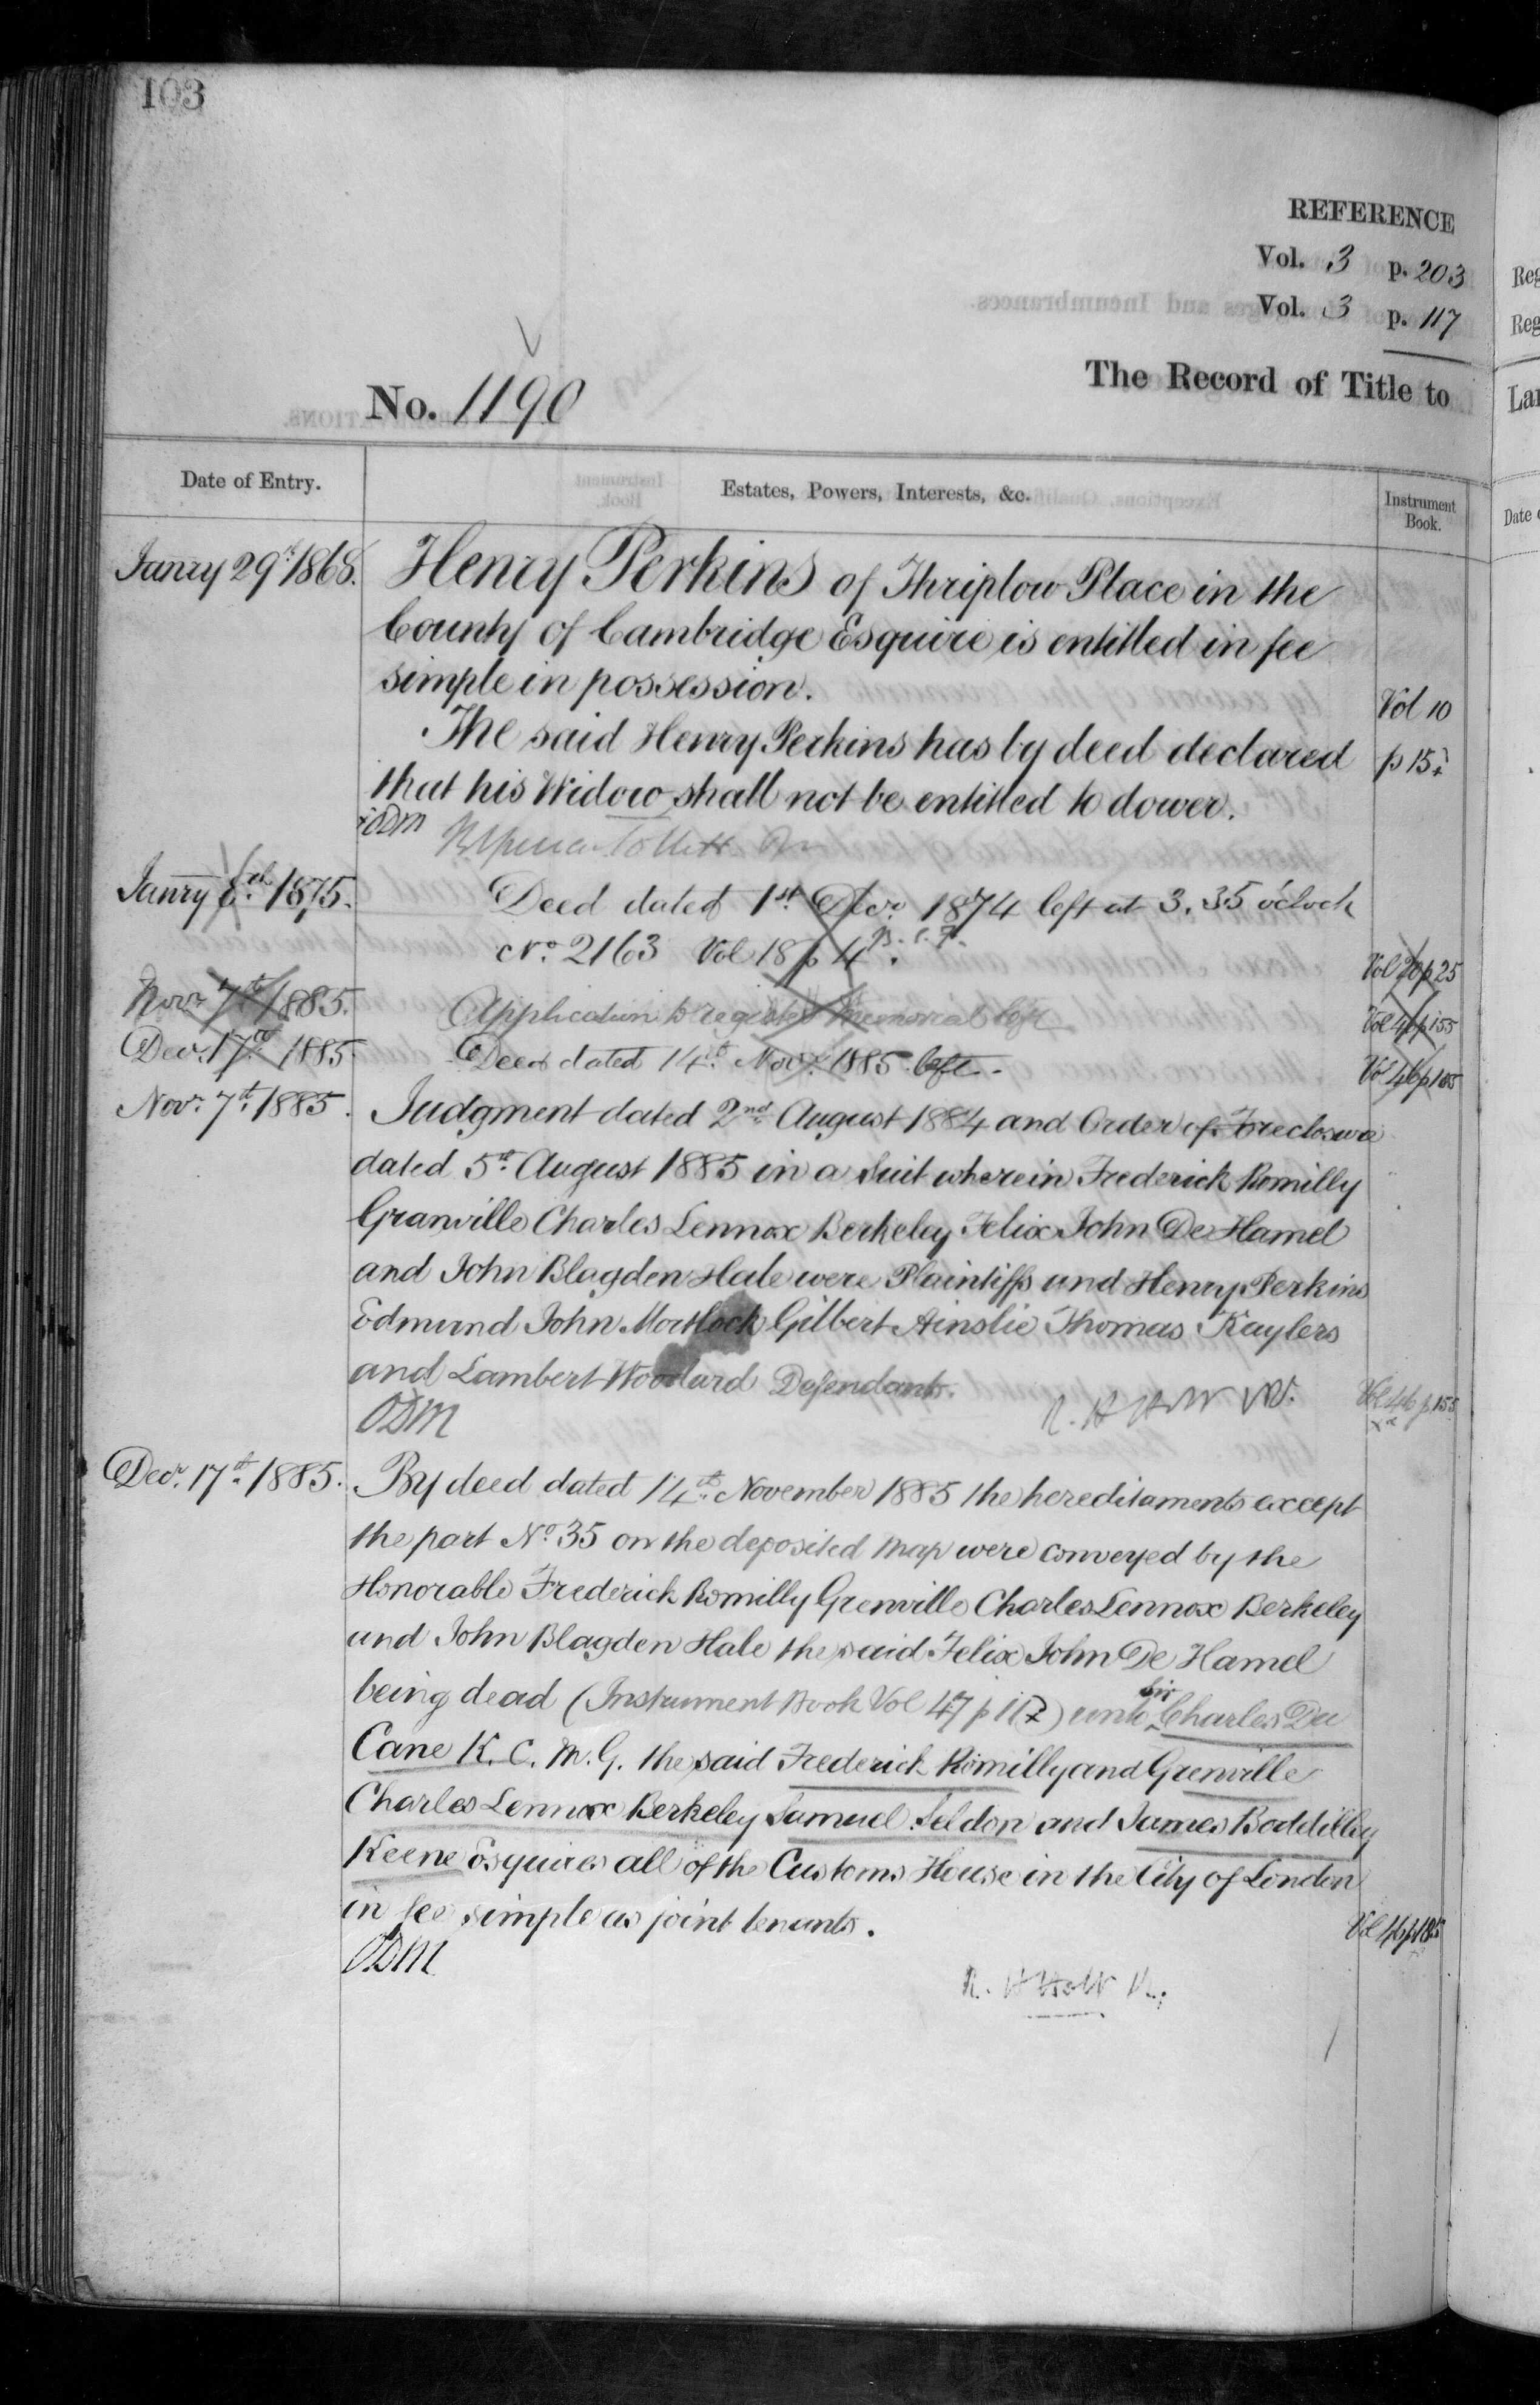 103
REFERENCE
Vol. 3 p. 203
Vol. 3 p. 117
No. 1190
The Record of Title to
Date of Entry.
Estates, Powers, Interests, &c.
Instrument Book.
Janry 29th 1868.
Henry Perkins of Thriplow Place in the
County of Cambridge Esquire is entitled in fee
simple in possession.
Vol 10
The said Henry Perkins has by deed declared
p 15
that his Widow shall not be entitled to dower.
ODM
Janry 8th 1875.
Deed dated 1st Decr. 1874 left at 3.35 o'clock
No. 2163 Vol 18 p 4.
Vol 20 p 25
Novr 7th 1885.
Application to register memorial left
Vol 46 p 155
Decr. 17th 1885
Deed dated 14th Novr. 1885 left.
Vol 46 p 185
Novr. 7th 1885.
Judgment dated 2nd August 1884 and Order of Foreclosure
dated 5th August 1885 in a Suit wherein Frederick Romilly
Granville Charles Lennox Berkeley Felix John De Hamel
and John Blagden Hale were Plaintiffs and Henry Perkins
Edmund John Mortlock Gilbert Ainslie Thomas Kaylers
and Lambert Woodard Defendants.
Vol 46 p 155
ODM
R. H Holt
Decr. 17th 1885.
By deed dated 14th November 1885 the hereditaments except
the part No. 35 on the deposited Map were conveyed by the
Honorable Frederick Romilly Grenville Charles Lennox Berkeley
and John Blagden Hale the said Felix John De Hamel
being dead (Instrument Book Vol 47 p 117) unto Sir Charles Du
Cane K. C. M. G. the said Frederick Romilly and Grenville
Charles Lennox Berkeley Samuel Seldon and James Boddilly
Keene Esquires all of the Customs House in the City of London
in fee simple as joint tenants.
Vol 46 p 185
ODM
R. H Holt R.
Reg
Reg
Lan
Date o